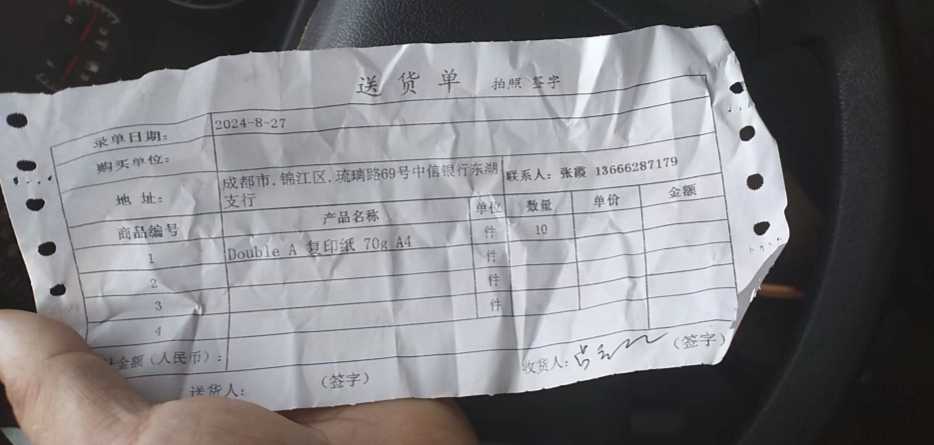 送货单 拍照 签字
录单日期: 2024-8-27
购买单位:
地 址: 成都市.锦江区.琉璃路69号中信银行东湖支行 联系人: 张霞 13666287179
商品编号 产品名称 单位 数量 单价 金额
1 Double A 复印纸 70g A4 件 10
2 件
3 件
4
计金额(人民币):
送货人: (签字) 收货人: (签字)